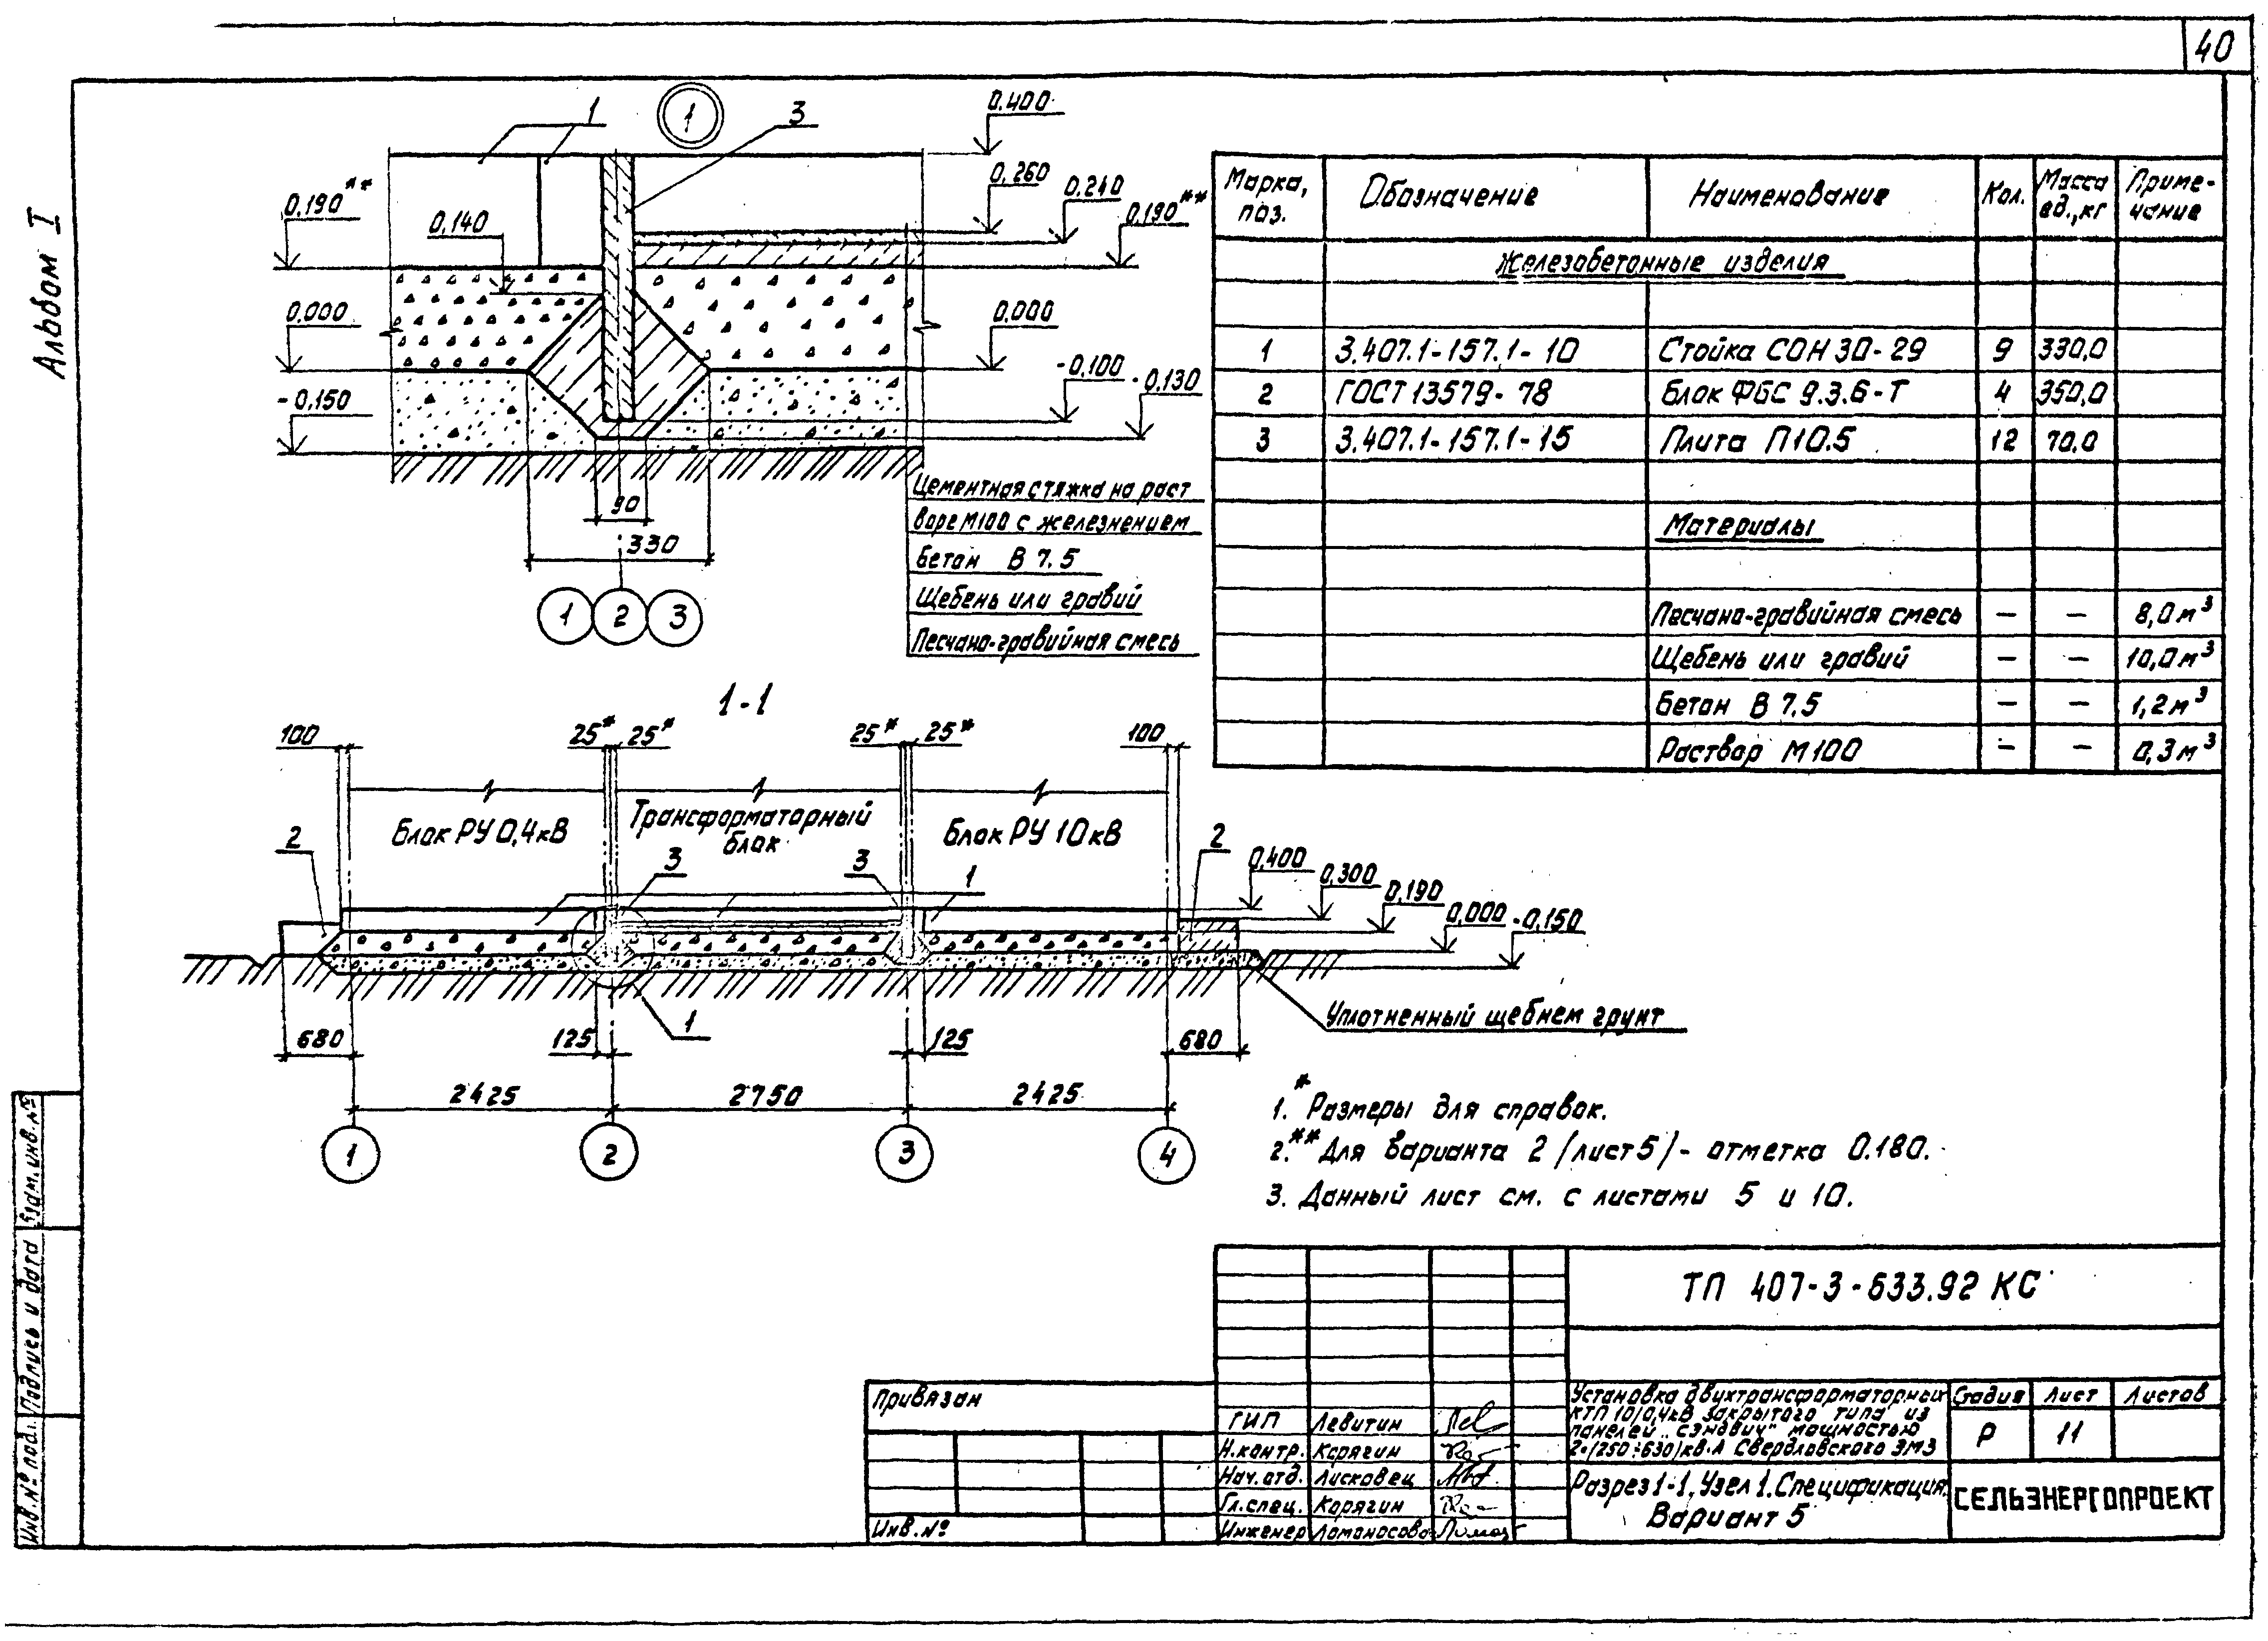 40
Альбом I
1
1
3
0.400
0.260
0.240
0.190**
0.190**
0.140
0.000
0.000
-0.100
-0.130
-0.150
90
330
1 2 3
Цементная стяжка на раст
воре М100 с железнением
Бетон В 7.5
Щебень или гравий
Песчано-гравийная смесь
Марка, поз. Обозначение Наименование Кол. Масса ед., кг Приме-чание
Железобетонные изделия
1 3.407.1-157.1-10 Стойка СОН 30-29 9 330,0
2 ГОСТ 13579-78 Блок ФБС 9.3.6-Т 4 350,0
3 3.407.1-157.1-15 Плита П10.5 12 70.0
Материалы
Песчано-гравийная смесь — — 8,0 м³
Щебень или гравий — — 10,0 м³
Бетон В 7.5 — — 1,2 м³
Раствор М100 — — 0,3 м³
1-1
100 25* 25* 25* 25* 100
Блок РУ 0,4 кВ
Трансформаторный
блок
Блок РУ 10 кВ
2 3 3 1 2
0,400
0,300
0,190
0,000
-0,150
Уплотненный щебнем грунт
1
680 125 125 680
2425 2750 2425
1 2 3 4
1.* Размеры для справок.
2.** Для варианта 2 (лист 5) - отметка 0.180.
3. Данный лист см. с листами 5 и 10.
Взам. инв. №
Подпись и дата
Инв. № подл.
Привязан
Инв. №
ТП 407-3-633.92 КС
ГИП Левитин
Н.контр. Карягин
Нач. отд. Лисковец
Гл. спец. Карягин
Инженер Ломоносова
Установка двухтрансформаторных
КТП 10/0,4 кВ закрытого типа из
панелей „сэндвич" мощностью
2×(250÷630) кВ·А Свердловского ЭМЗ
Стадия Лист Листов
Р 11
Разрез 1-1. Узел 1. Спецификация.
Вариант 5
СЕЛЬЭНЕРГОПРОЕКТ